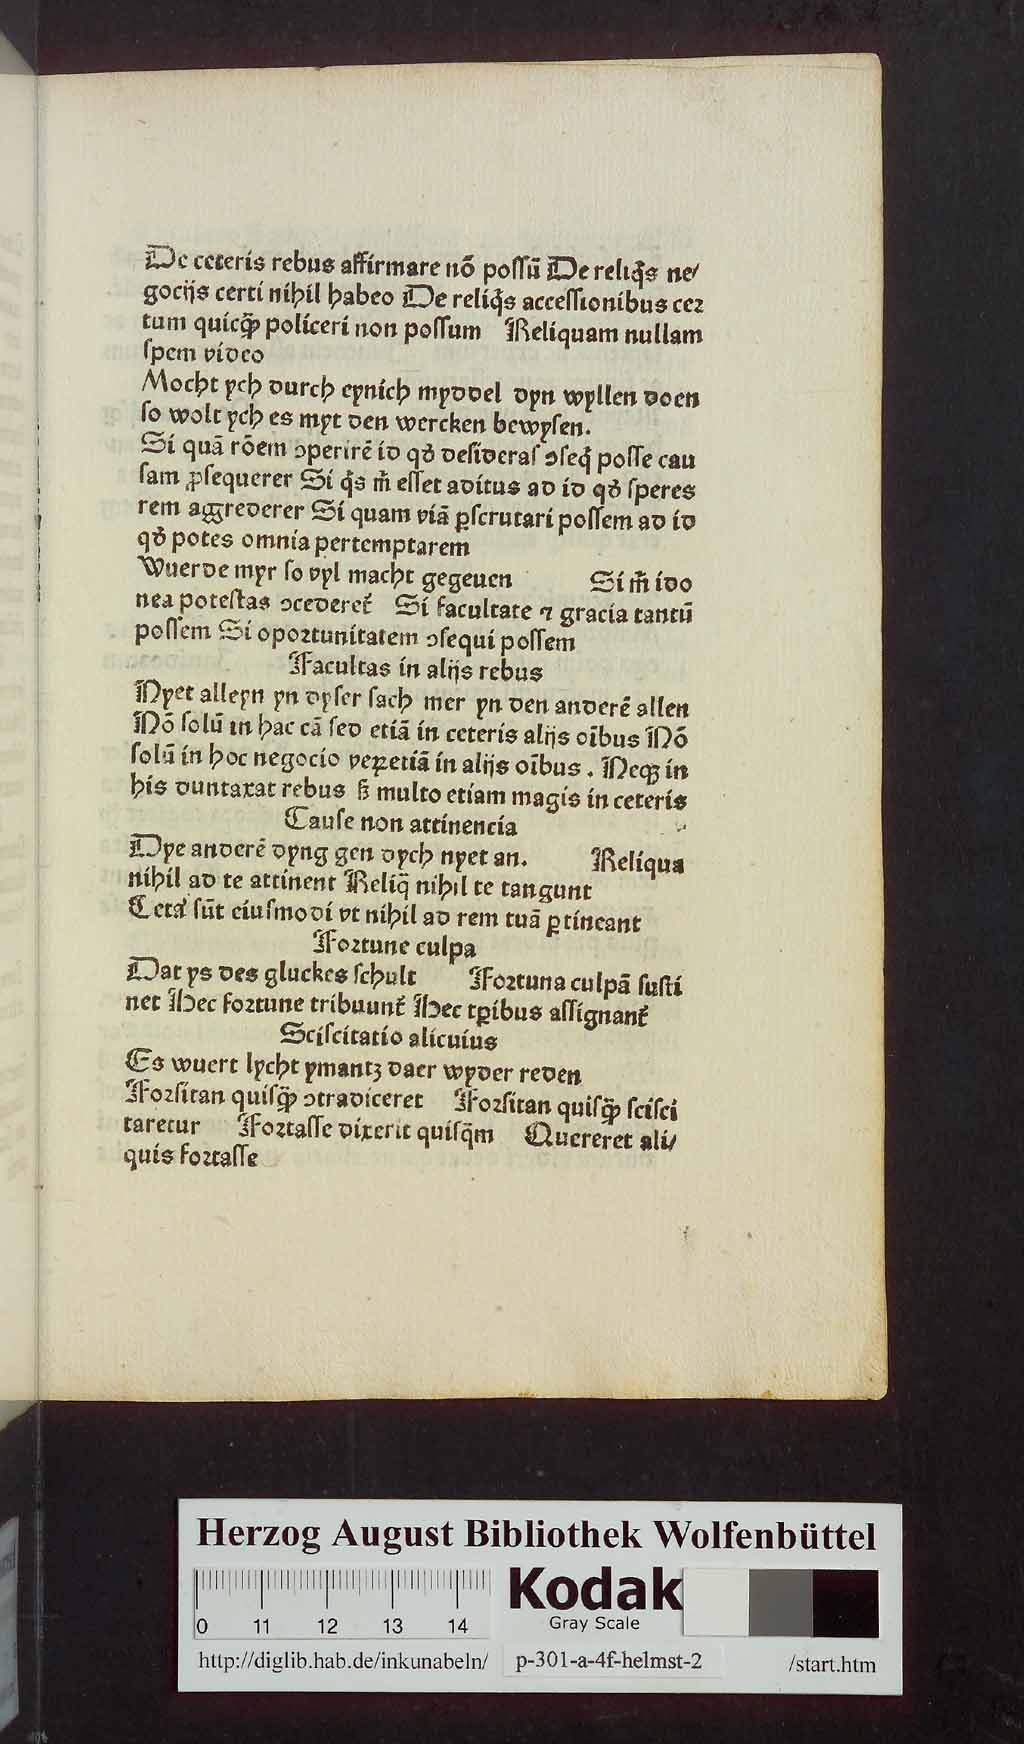 De ceteris rebus affirmare nõ poſſū De reliq̃s ne/
gocijs certi nihil habeo De reliq̃s acceſſionibus cer
tum quicq̃ policeri non poſſum Reliquam nullam
ſpem video
Mocht ych durch eynich myddel dyn wyllen doen
ſo wolt ych es myt den wercken bewyſen.
Si quā rõem ꝯperirē id qđ deſideraſ ꝯſeq̃ poſſe cau
ſam ꝓſequerer Si q̃s m̃ eſſet aditus ad id qđ ſperes
rem aggrederer Si quam viā ꝑſcrutari poſſem ad id
qđ potes omnia pertemptarem
Wuerde myr ſo vyl macht gegeuen Si m̃ ido
nea poteſtas ꝯcederet̃ Si facultate ⁊ gracia tantū
poſſem Si oportunitatem ꝯſequi poſſem
Facultas in alijs rebus
Nyet alleyn yn dyſer ſach mer yn den anderē allen
Nõ ſolū in hac cā ſed etiā in ceteris alijs oĩbus Nõ
ſolū in hoc negocio veꝝetiā in alijs oĩbus . Neqꝫ in
his duntaxat rebus ẞ multo etiam magis in ceteris
Cauſe non attinencia
Dye anderē dyng gen dych nyet an. Reliqua
nihil ad te attinent Reliq̃ nihil te tangunt
Ceta᷑ ſūt eiuſmodi vt nihil ad rem tuā ꝑtineant
Fortune culpa
Dat ys des gluckes ſchult Fortuna culpā ſuſti
net Hec fortune tribuunt̃ Hec tꝑibus aſſignant̃
Sciſcitatio alicuius
Es wuert lycht ymantz daer wyder reden
Forſitan quiſq̃ ꝯtradiceret Forſitan quiſq̃ ſciſci
taretur Fortaſſe dixerit quiſq̃m Quereret ali/
quis fortaſſe
Herzog August Bibliothek Wolfenbüttel
0 11 12 13 14
Kodak
Gray Scale
http://diglib.hab.de/inkunabeln/ p-301-a-4f-helmst-2 /start.htm